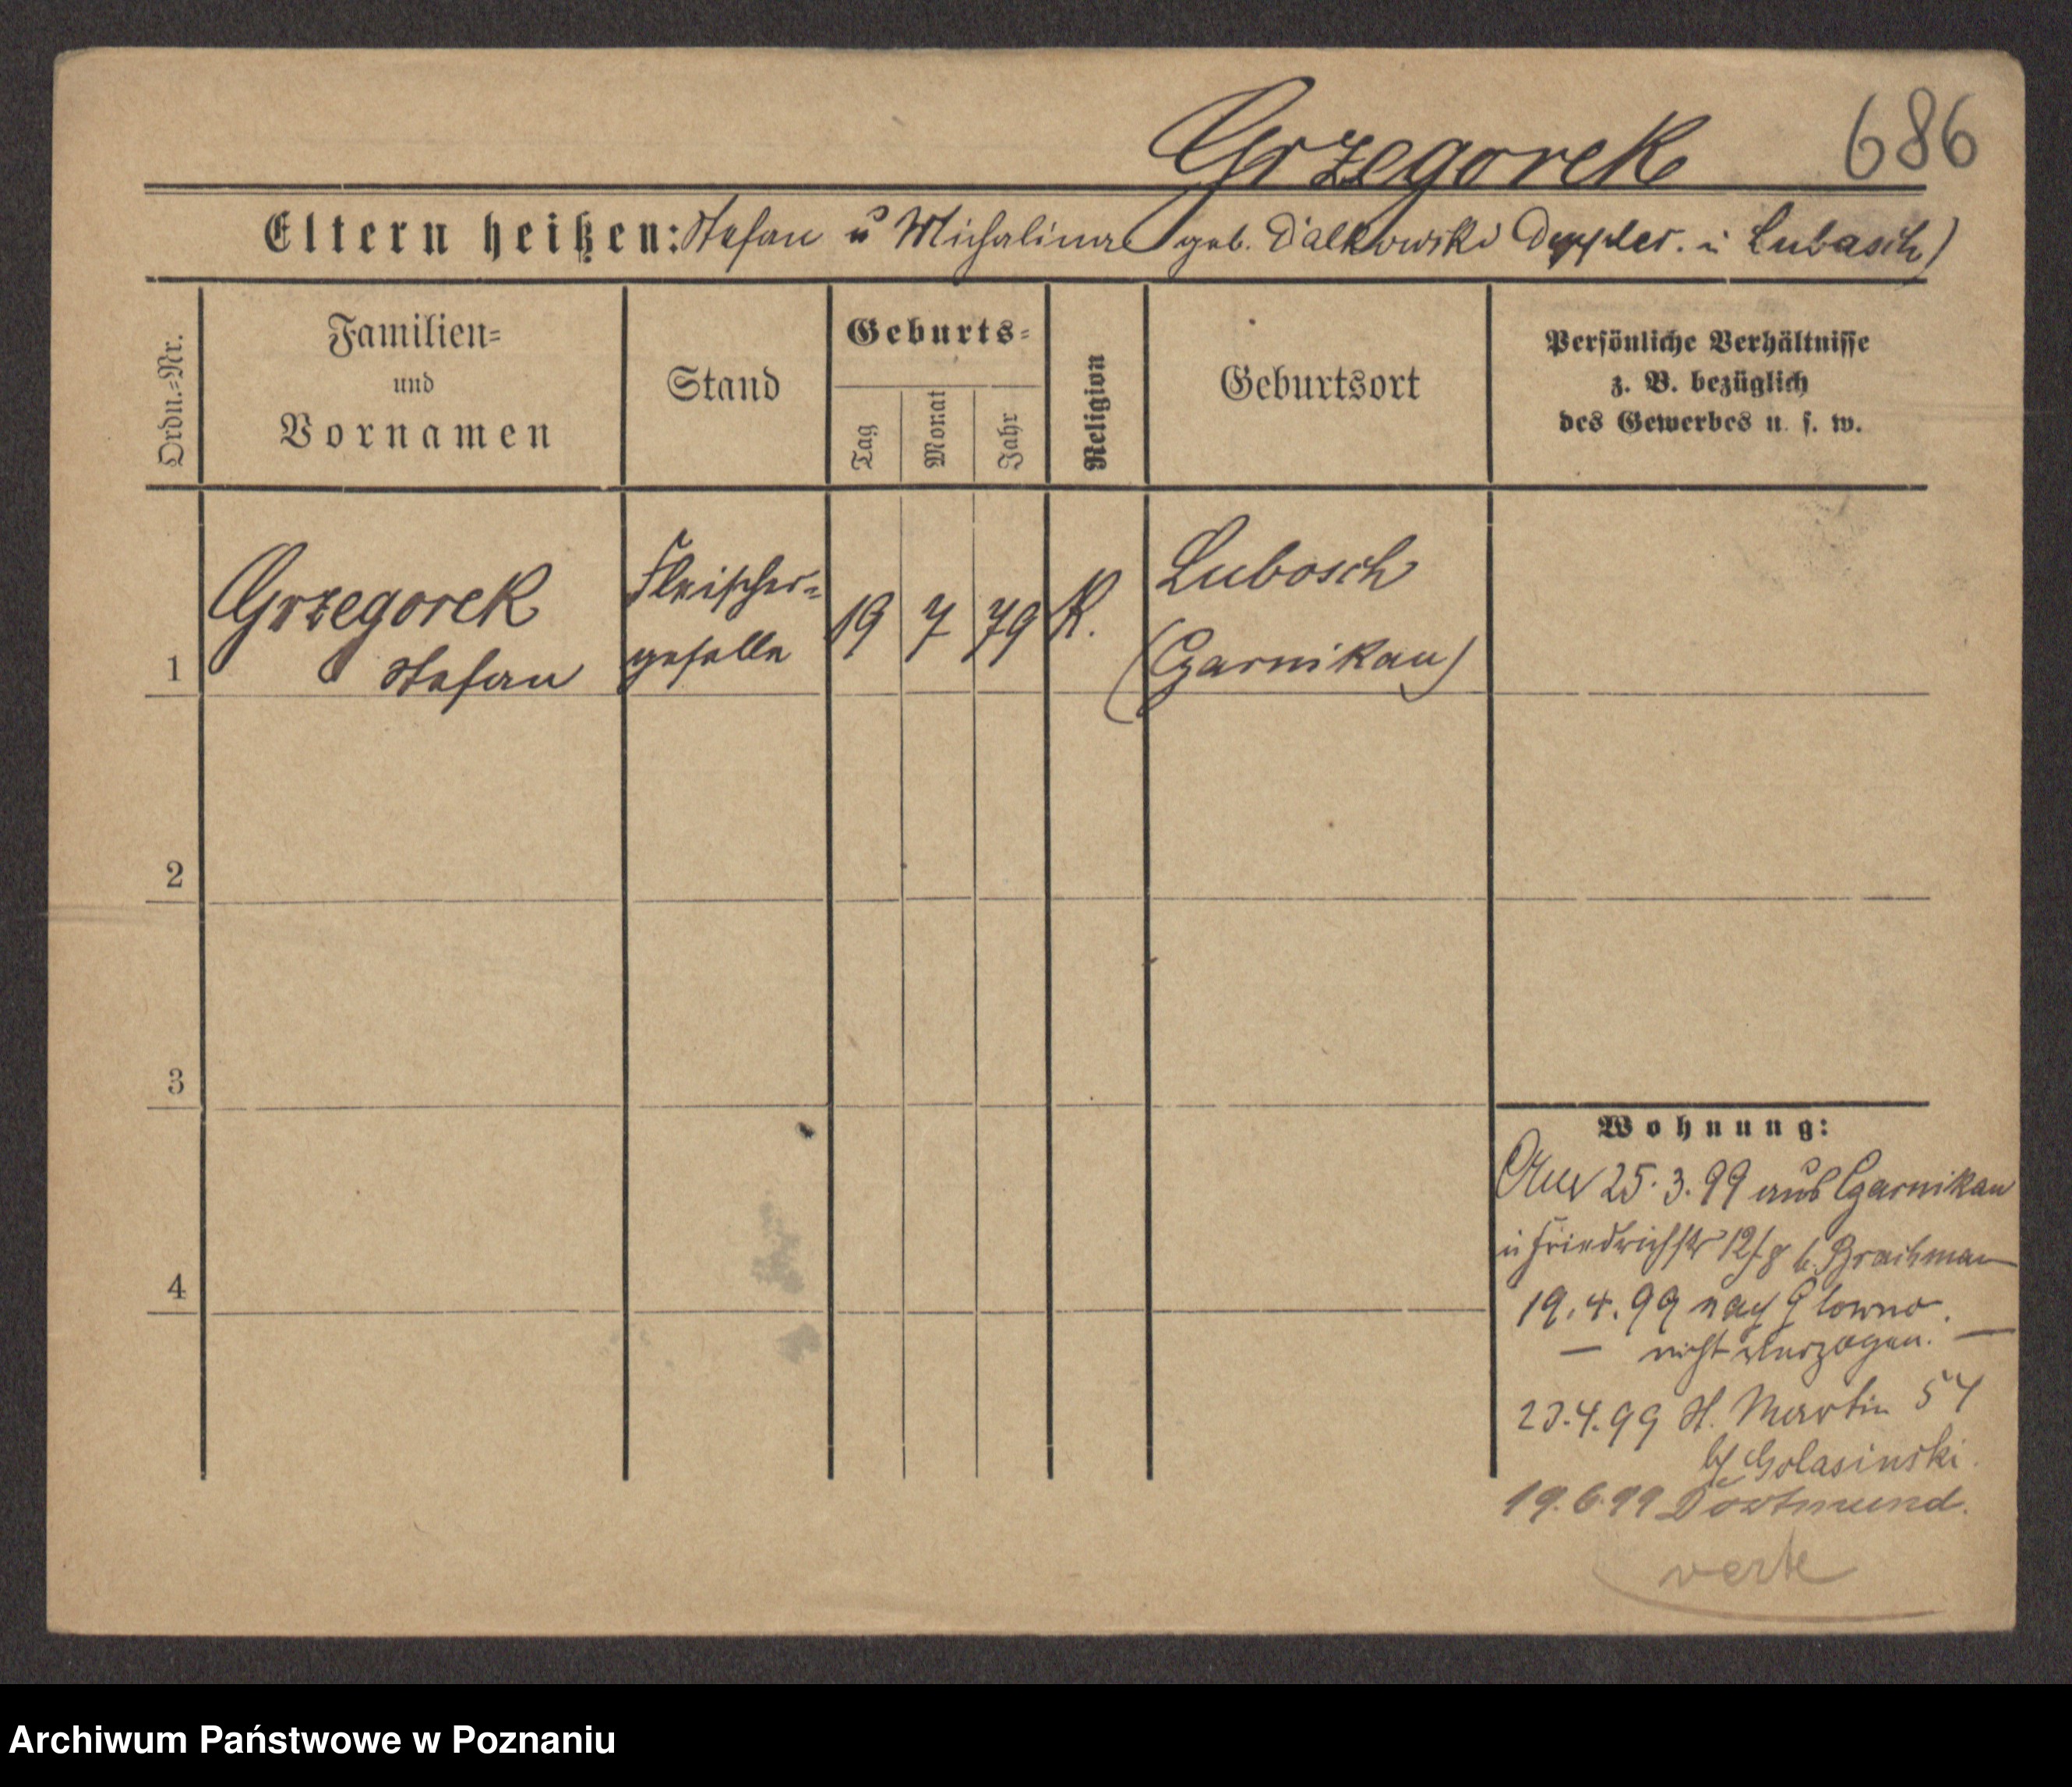 Grzegorek 686
Eltern heißen: Stefan u Michalina geb. Dalkowski in Lubasch)
Ordn.=Nr.
Familien=
und
Vornamen
Stand
Geburts=
Tag
Monat
Jahr
Religion
Geburtsort
Persönliche Verhältnisse
z. B. bezüglich
des Gewerbes u. s. w.
1 Grzegorek Stefan
Fleischer=
geselle
19 7 79 K.
Lubosch
(Czarnikau)
2
3
4
Wohnung:
25. 3. 99 aus Czarnikau
Friedrichstr 12 b.
19. 4. 99 nach Glowno.
— nicht verzogen. —
23. 4. 99 St. Martin 54
bei Golasinski.
19. 6. 99 Dortmund.
verte
Archiwum Państwowe w Poznaniu